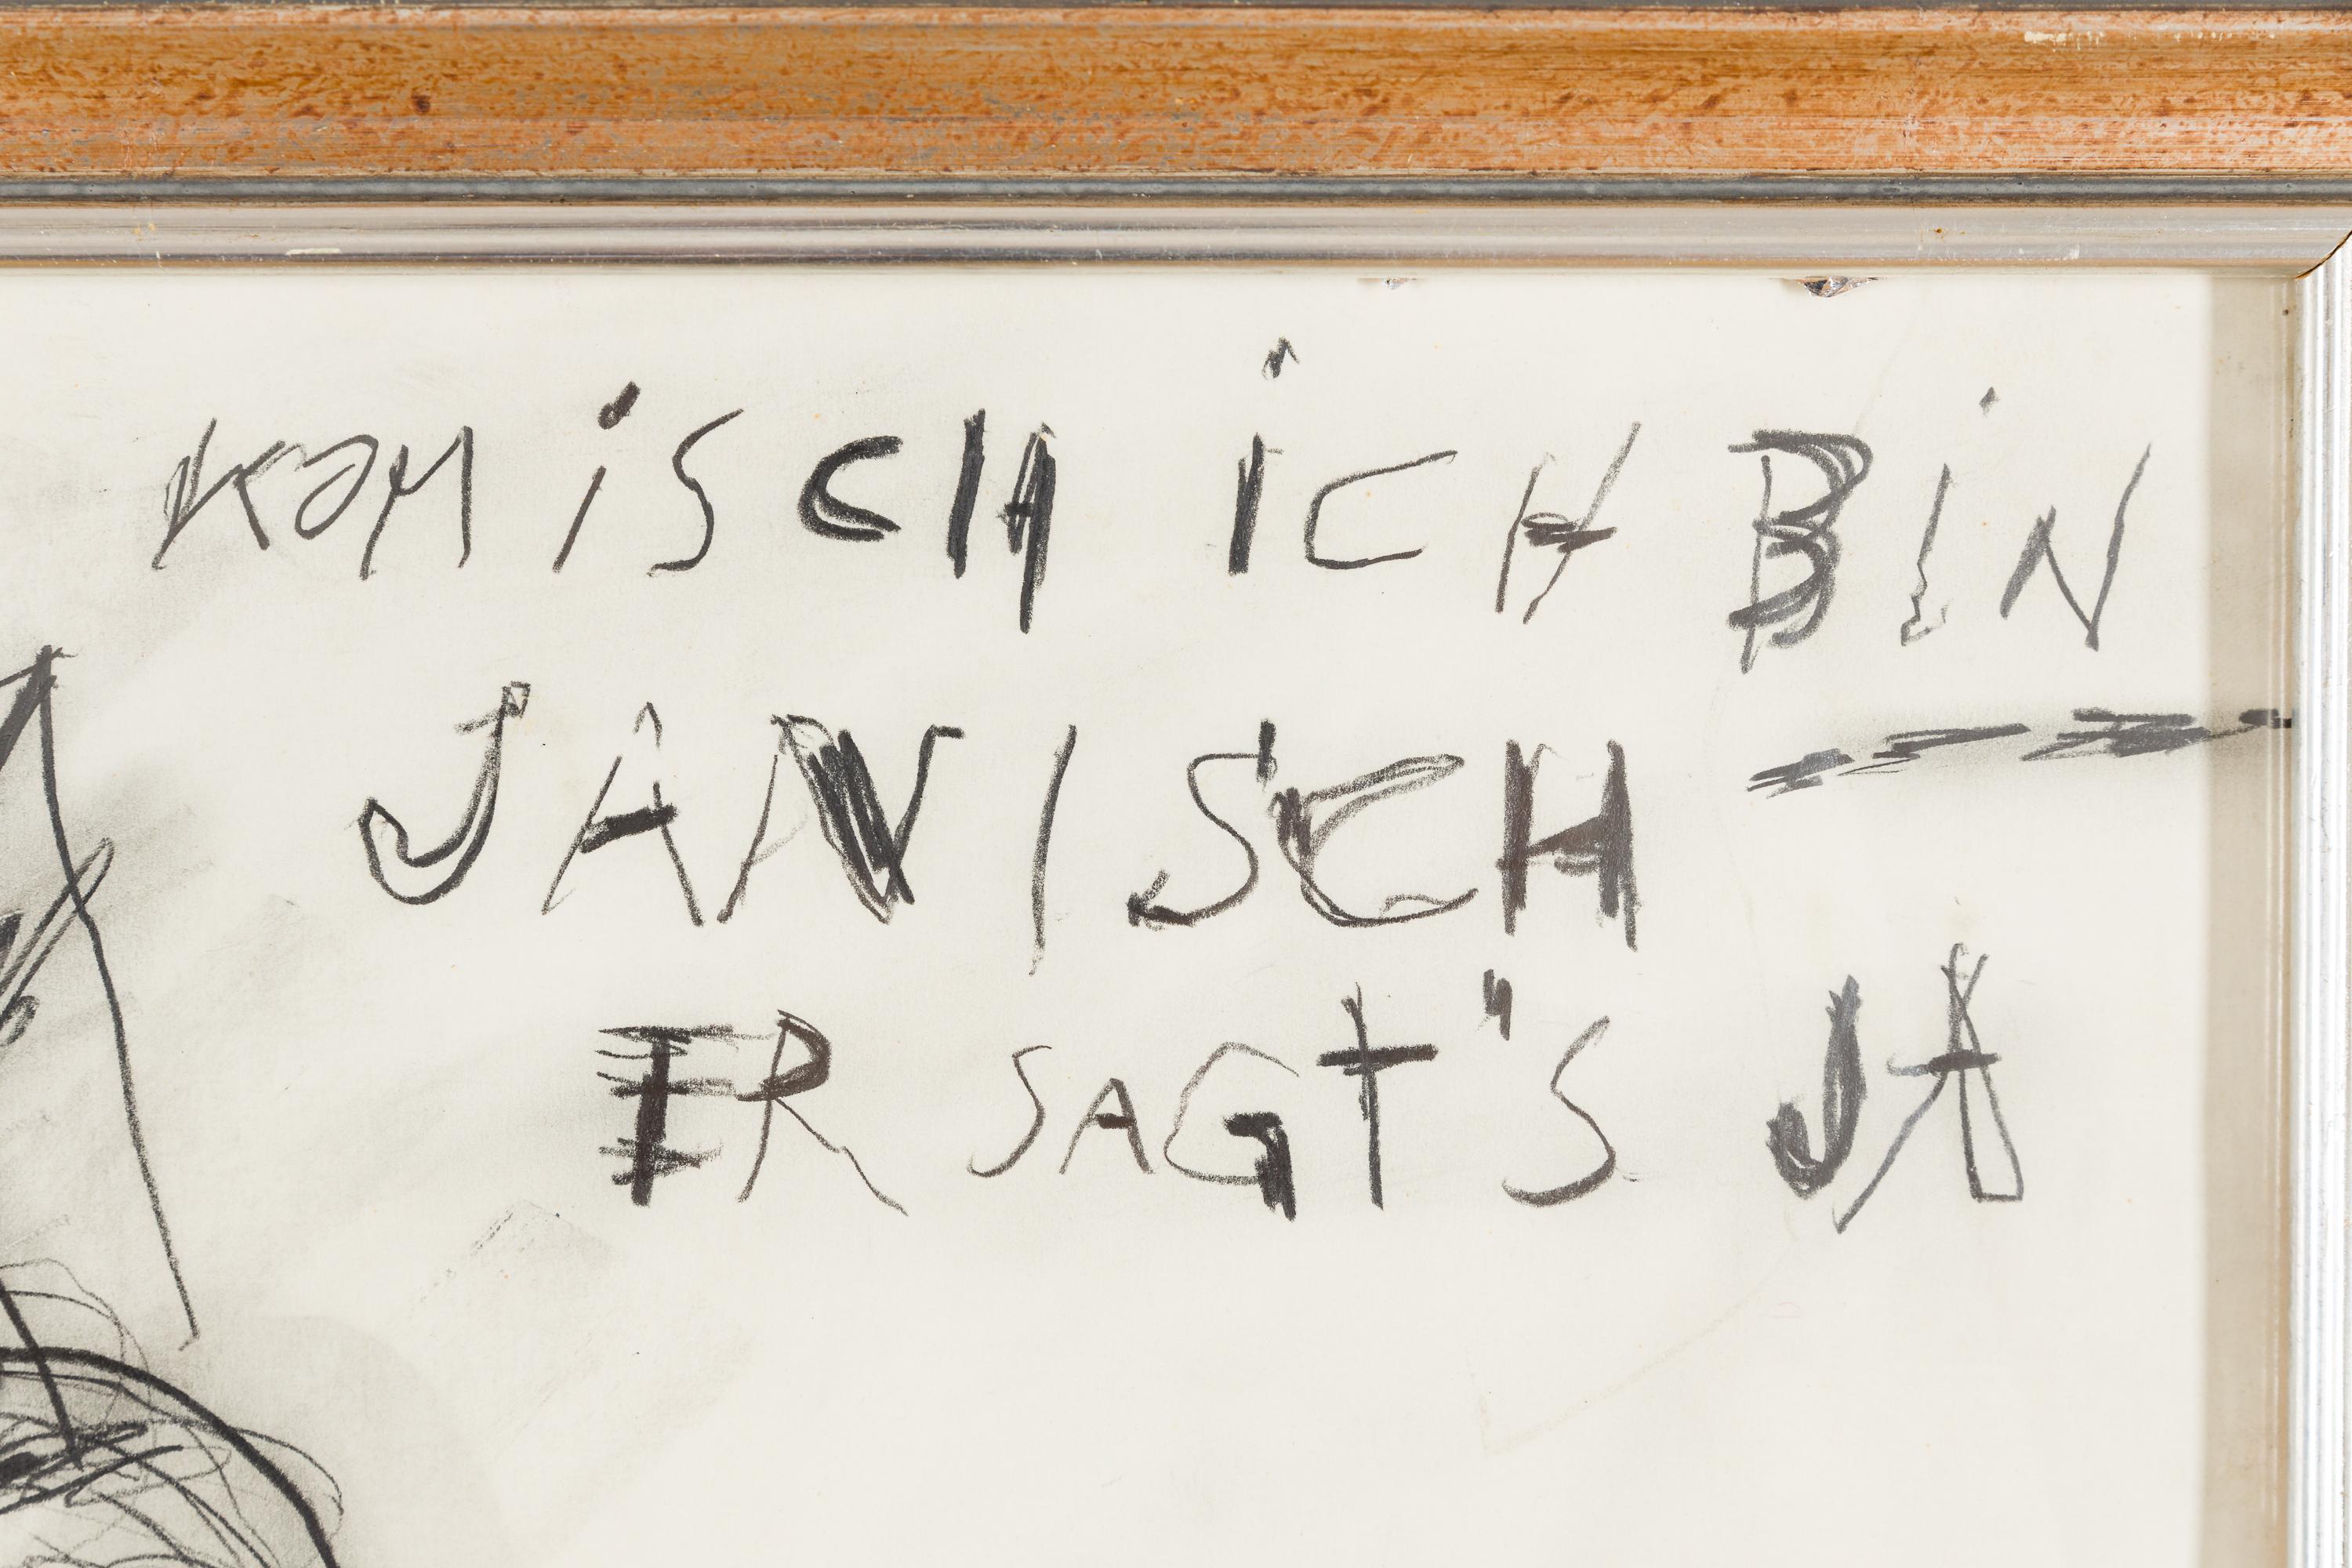 KOMiSCH iCH BiN
JANISCH —
ER SAGT'S JA